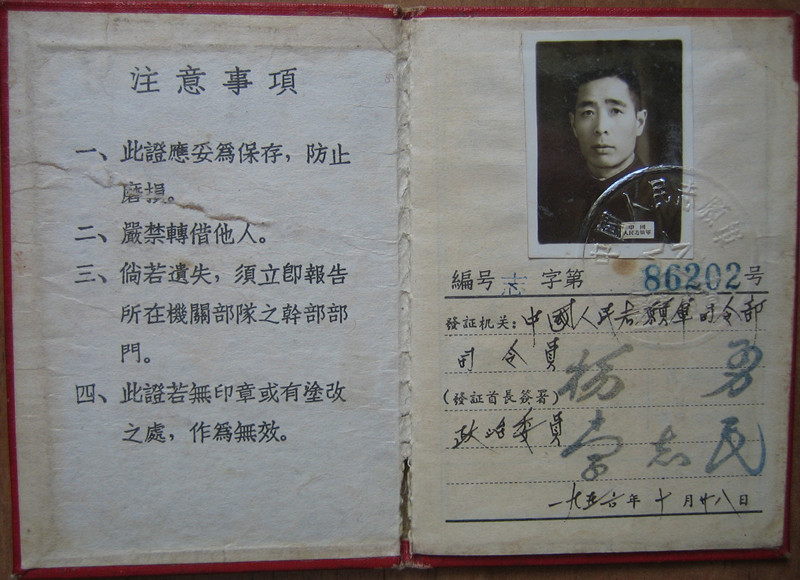 注意事項
一、此證應妥爲保存，防止
磨損。
二、嚴禁轉借他人。
三、倘若遺失，須立卽報告
所在機關部隊之幹部部
門。
四、此證若無印章或有塗改
之處，作爲無效。
中國
人民志願軍
編号 志 字第 86202号
發証机关：中國人民志願軍司令部
司令員 杨勇
(發証首長簽署)
政治委員 李志民
一九五六年十月廿八日